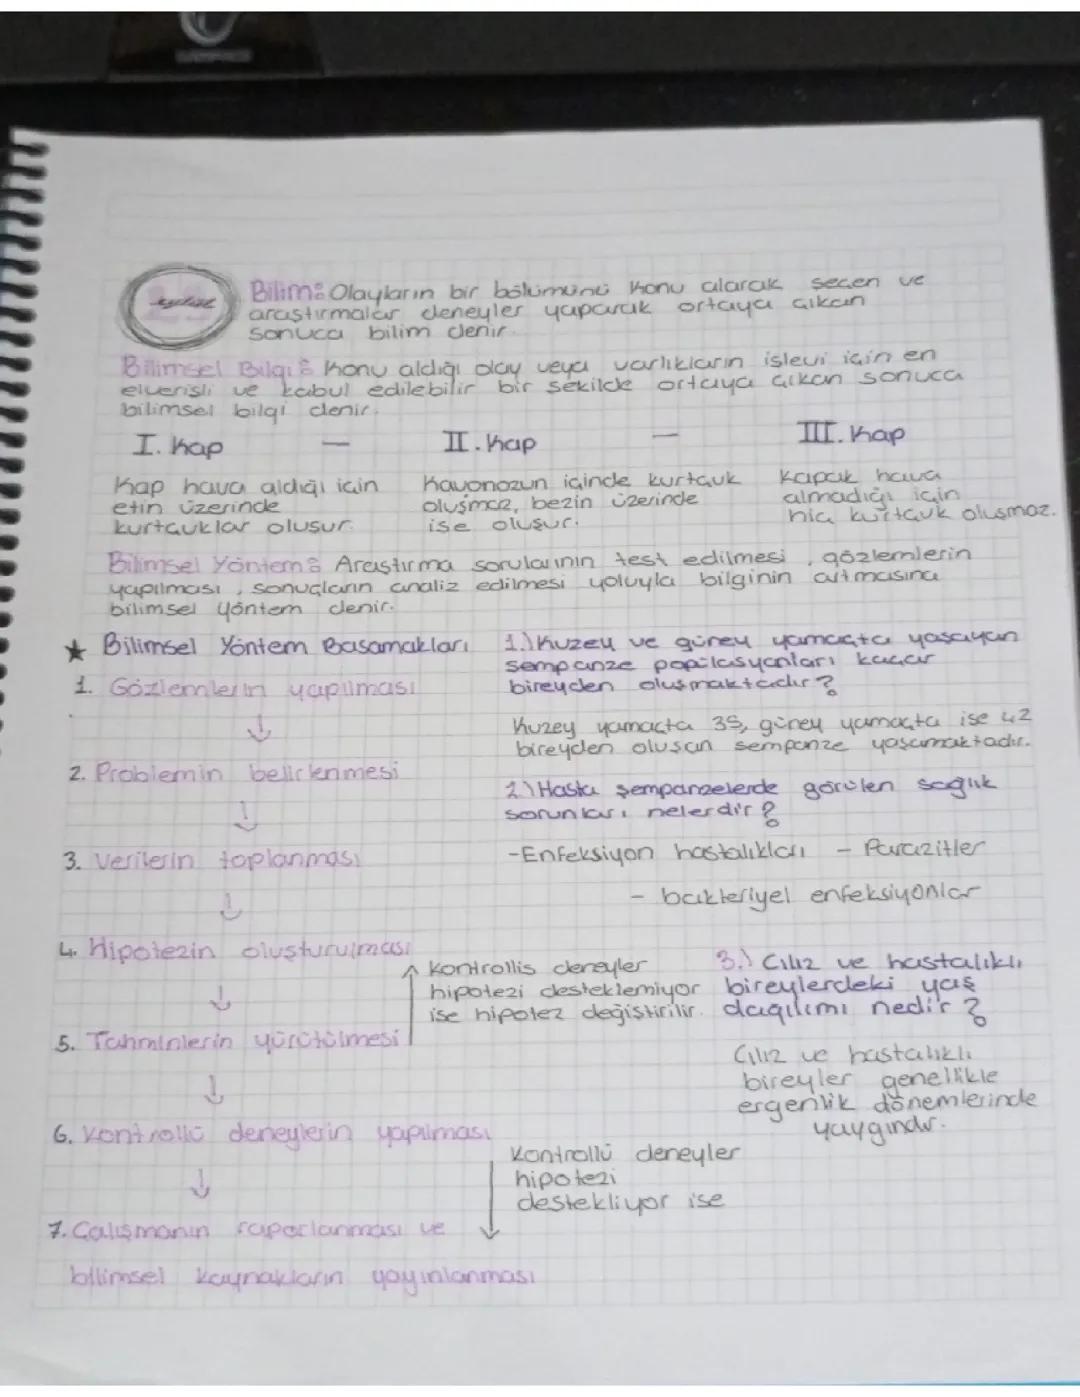 Bilim: Olayların bir bölümünü konu alarak seçen ve
araştırmalar deneyler yaparak ortaya çıkan
sonuca bilim denir.
Bilimsel Bilgi: Konu aldığı olay veya varlıkların işlevi için en
elverişli ve kabul edilebilir bir şekilde ortaya çıkan sonuca
bilimsel bilgi denir.
I. Kap – II. Kap – III. Kap
Kap hava aldığı için
etin üzerinde
kurtçuklar oluşur.
Kavonozun içinde kurtçuk
oluşmaz, bezin üzerinde
ise oluşur.
Kapak hava
almadığı için
hiç kurtçuk oluşmaz.
Bilimsel Yöntem: Araştırma sorularının test edilmesi, gözlemlerin
yapılması, sonuçların analiz edilmesi yoluyla bilginin artmasına
bilimsel yöntem denir.
★ Bilimsel Yöntem Basamakları
1. Gözlemlerin yapılması
↓
2. Problemin belirlenmesi
↓
3. Verilerin toplanması
↓
4. Hipotezin oluşturulması
↓
5. Tahminlerin yürütülmesi
↓
6. Kontrollü deneylerin yapılması
↓
7. Çalışmanın raporlanması ve
bilimsel kaynakların yayınlanması
Kontrollis deneyler
hipotezi desteklemiyor
ise hipotez değiştirilir.
Kontrollü deneyler
hipotezi
destekliyor ise
1.) Kuzey ve güney yamaçta yaşayan
şempanze popülasyonları kaçar
bireyden oluşmaktadır?
Kuzey yamaçta 35, güney yamaçta ise 42
bireyden oluşan şempanze yaşamaktadır.
2.) Hasta şempanzelerde görülen sağlık
sorunları nelerdir?
- Enfeksiyon hastalıkları - Parazitler
- bakteriyel enfeksiyonlar
3.) Cılız ve hastalıklı
bireylerdeki yaş
dağılımı nedir?
Cılız ve hastalıklı
bireyler genellikle
ergenlik dönemlerinde
yaygındır.